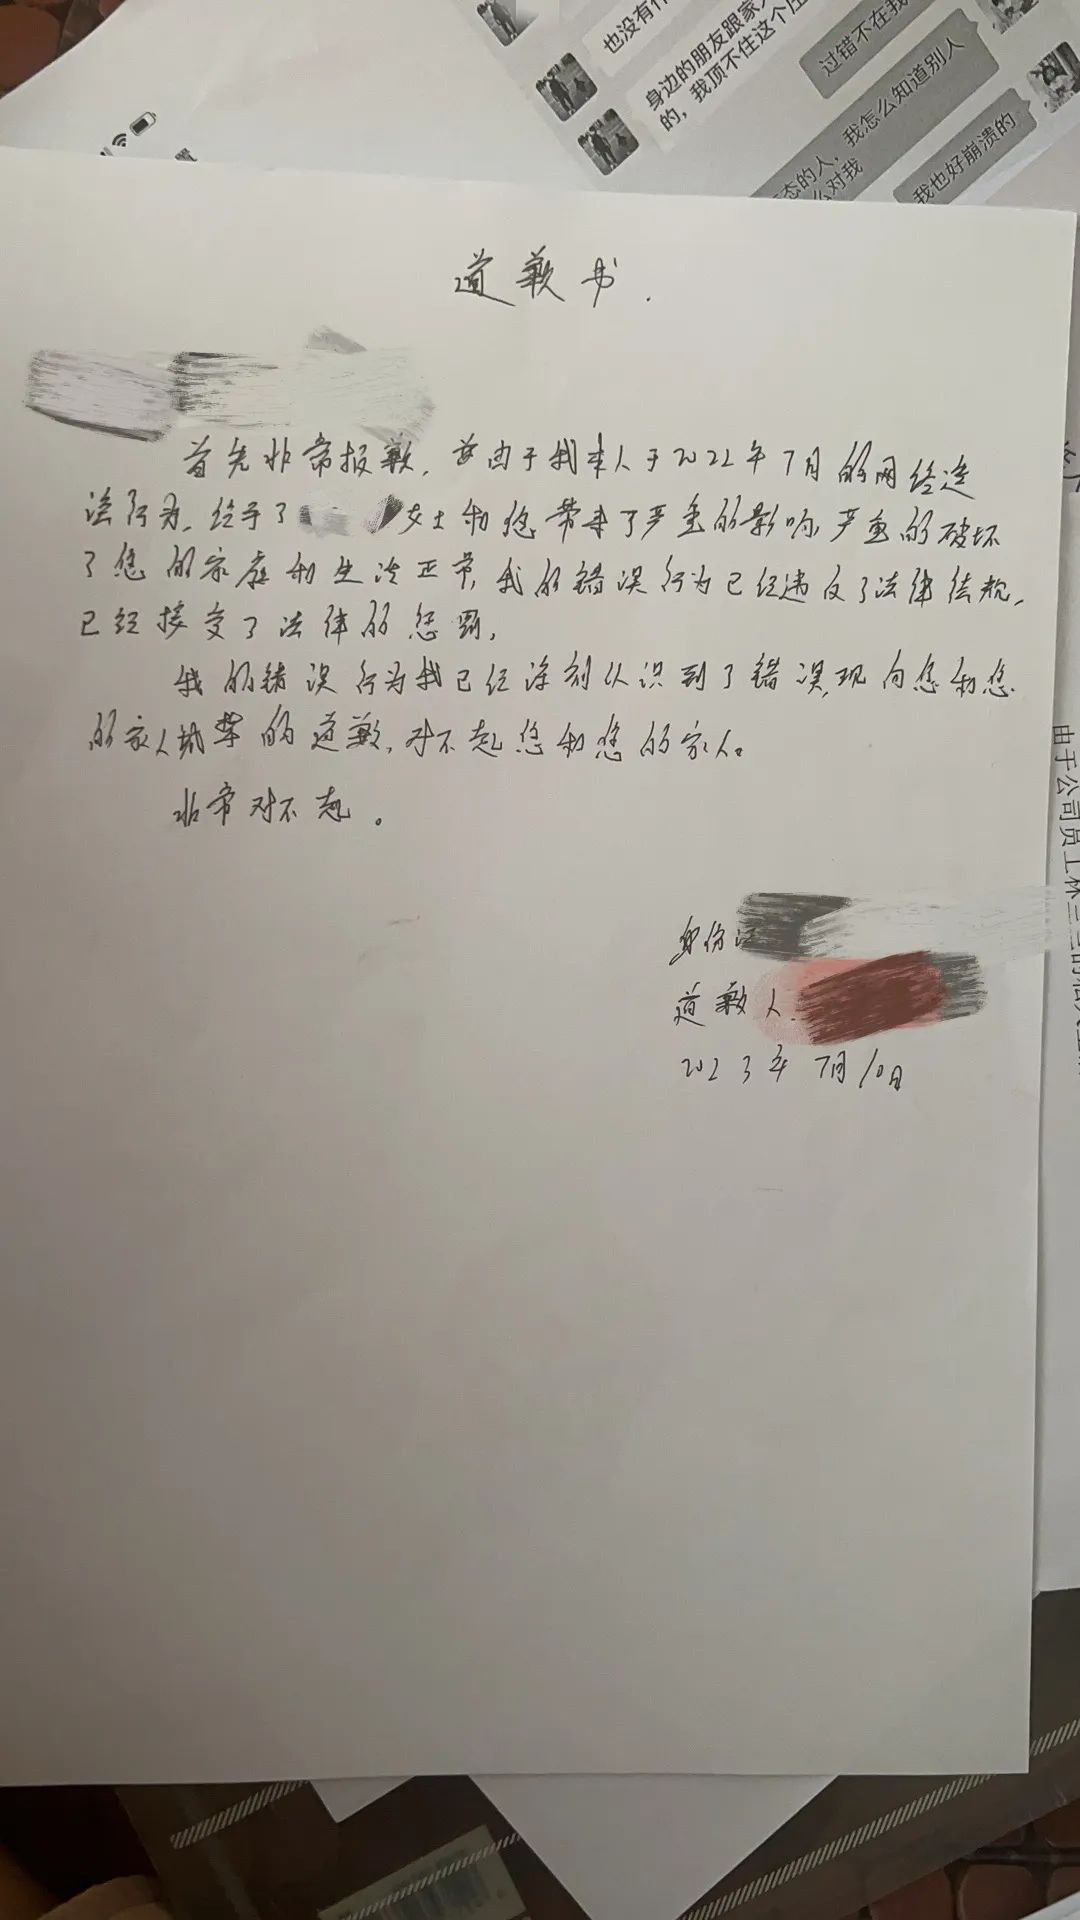 也没有什
身边的朋友跟家人
的，我顶不住这个压
过错不在我
态的人，我怎么知道别人
么对我
我也好崩溃的
道歉书.
首先非常报歉，由于我本人于2022年7月的网络违
法行为，给予了
女士和您带来了严重的影响，严重的破坏
了您的家庭和生活正常，我的错误行为已经违反了法律法规，
已经接受了法律的惩罚，
我的错误行为我已经深刻认识到了错误，现向您和您
的家人诚挚的道歉，对不起您和您的家人。
非常对不起。
身份证
道歉人.
2023年7月10日
由于公司员工林三三的